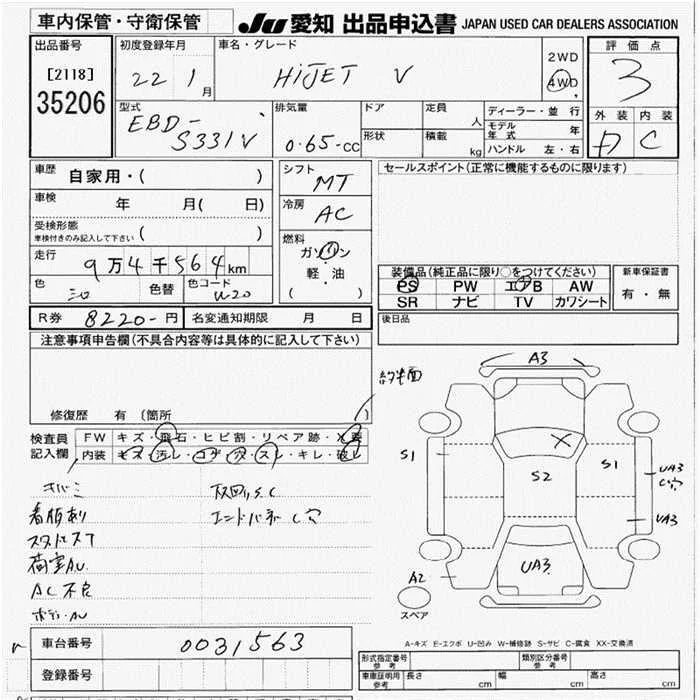 車内保管・守衛保管
JU 愛知 出品申込書 JAPAN USED CAR DEALERS ASSOCIATION
出品番号
[2118]
35206
初度登録年月
22 1月
車名・グレード
HiJET V
2WD
4WD
評価点
3
外装 内装
D C
型式
EBD-
S331V
排気量
0.65-cc
ドア
定員
人
形状
積載
kg
ディーラー・並行
モデル年式 年
ハンドル 左・右
車歴 自家用・( )
車検 年 月( 日)
受検形態
車検付きのみ記入して下さい ( )
走行 9万4千564km
色
色替
色コード
W20
シフト
MT
冷房
AC
燃料
ガソリン
軽・油
( )
セールスポイント(正常に機能するものに限ります)
装備品(純正品に限り○をつけてください)
PS PW エアB AW
SR ナビ TV カワシート
新車保証書
有・無
R券 8220-円
名変通知期限 月 日
後日品
注意事項申告欄(不具合内容等は具体的に記入して下さい)
修復歴 有(箇所 )
検査員
記入欄
FW キズ・飛石・ヒビ割・リペア跡・X要
内装 キズ・汚レ・コゲ・穴・スレ・キレ・破レ
キバミ
看板あり
荷室AU
AC不良
ボデーAU
下回りS.C
エンドパネC穴
A3
S1
S2
S1
UA3
C穴
UA3
UA3
A2
スペア
A-キズ E-エクボ U-凹み W-補修跡 S-サビ C-腐食 XX-交換済
車台番号 0031563
登録番号
形式指定番号
参考
類別区分番号
参考
車庫証明用
参考
長さ 幅 高さ